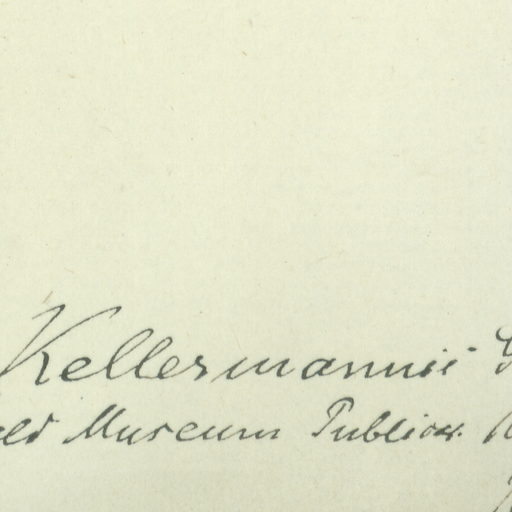 Kellermannii
Museum Publico.